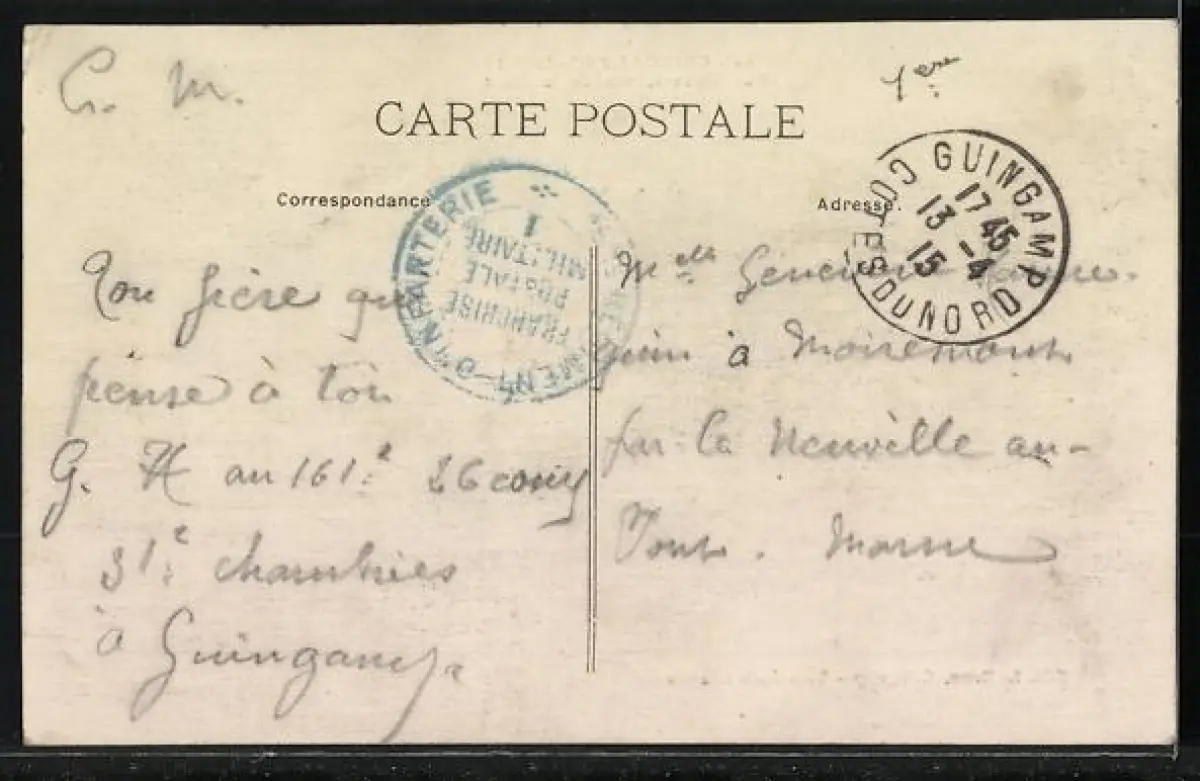 C. M.
1ère
CARTE POSTALE
Correspondance
Adresse.
GUINGAMP
COTES DU NORD
17 45
13 -4
15
RÉGIMENT D'INFANTERIE
FRANCHISE
POSTALE
MILITAIRE
1
Ton frère qui
pense à toi
G. H au 161e 26 comp
31e chambrée
à Guingamp.
Melle
à Moiremont
par la Neuville au-
Pont. Marne